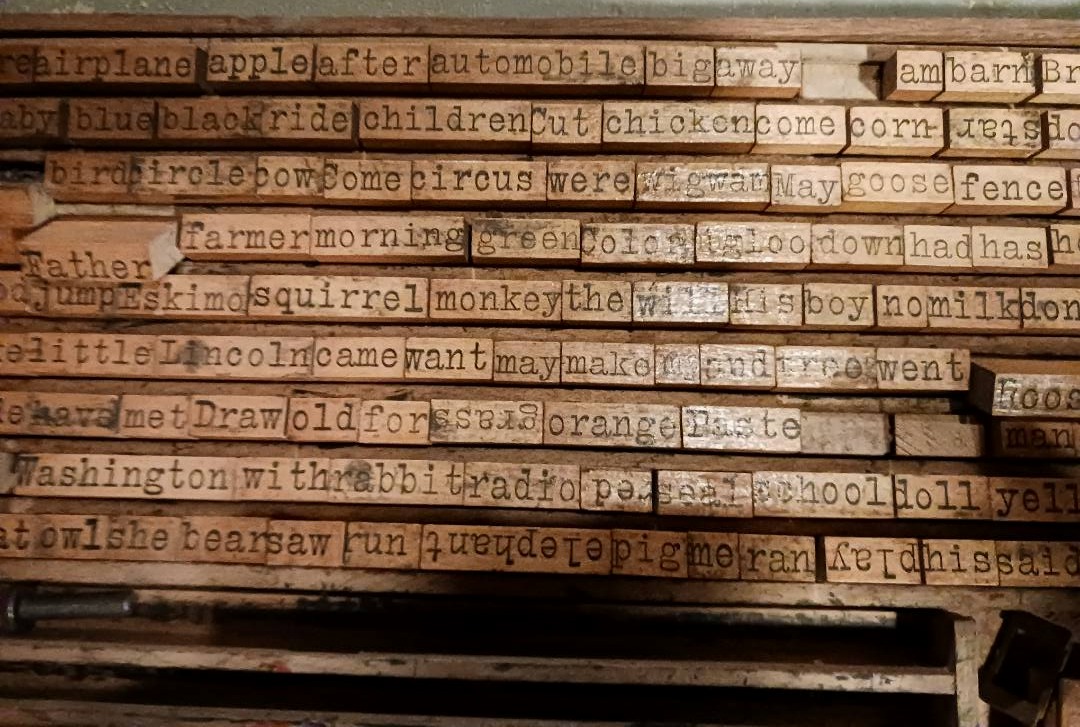 airplane apple after automobile big away am barn
blue black ride children Cut chicken come corn stars
bird circle cow Some circus were wigwam May goose fence
farmer morning green Color igloo down had has
Father
jump Eskimo squirrel monkey the will His boy no milk
little Lincoln came want may make and tree went
have met Draw old for grass orange Paste
man
Washington with rabbit radio seal school doll
owl she bear saw run elephant pig me ran play his said